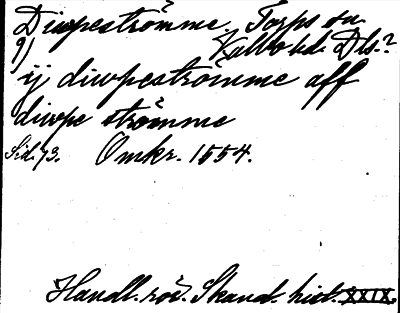 Diupeströmme, Torps sn
9) Valbo hd. Dls.?
ij diwpeströmme aff
diwpe strömme
Sid. 73. Omkr. 1554.
Handl. rör. Skand. hist. XXIX.